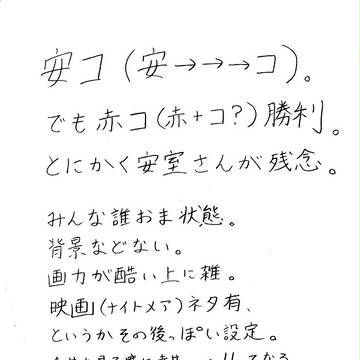 安コ(安→→→コ)。
でも赤コ(赤+コ?)勝利。
とにかく安室さんが残念。
みんな誰おま状態。
背景などない。
画力が酷い上に雑。
映画(ナイトメア)ネタ有、
というかその後っぽい設定。